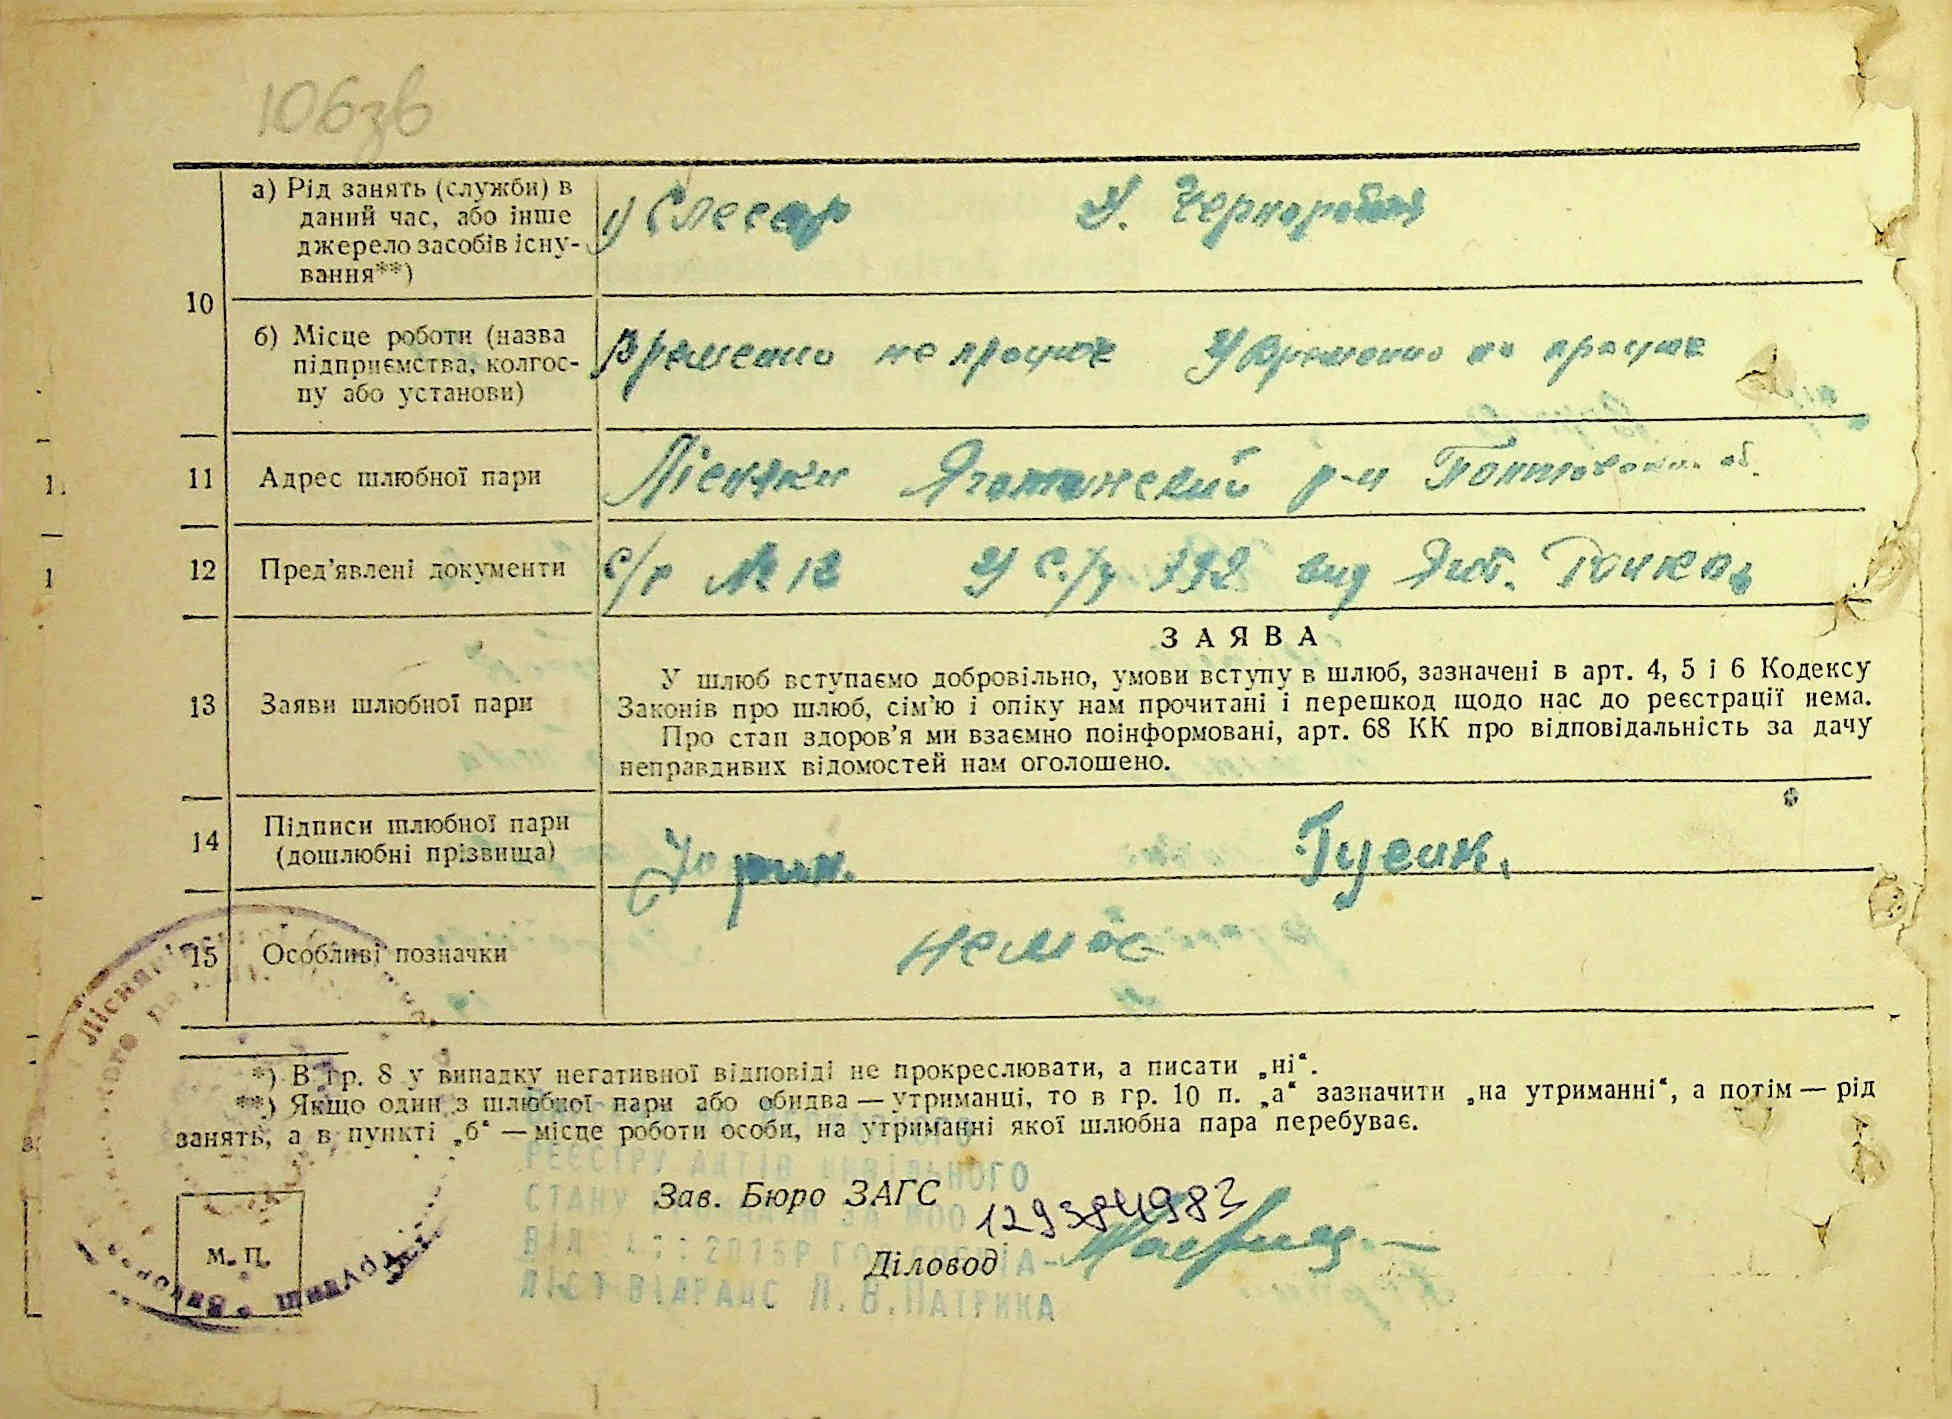 106зв
а) Рід занять (служби) в
даний час, або інше
джерело засобів існу-
вання**)
1) Слесар У. Чернороб
10
б) Місце роботи (назва
підприємства, колгос-
пу або установи)
Временно не працює У Временно не працює
11 Адрес шлюбної пари
Лісняки Яготинский р-н об.
12 Пред'явлені документи
с/р № 12 У с./р 392 вид
13 Заяви шлюбної пари
ЗАЯВА
У шлюб вступаємо добровільно, умови вступу в шлюб, зазначені в арт. 4, 5 і 6 Кодексу
Законів про шлюб, сім'ю і опіку нам прочитані і перешкод щодо нас до реєстрації нема.
Про стан здоров'я ми взаємно поінформовані, арт. 68 КК про відповідальність за дачу
неправдивих відомостей нам оголошено.
14 Підписи шлюбної пари
(дошлюбні прізвища)
Гусик.
15 Особливі позначки
немає
*) В гр. 8 у випадку негативної відповіді не прокреслювати, а писати „ні“.
**) Якщо один з шлюбної пари або обидва — утриманці, то в гр. 10 п. „а“ зазначити „на утриманні“, а потім — рід
занять, а в пункті „б“ — місце роботи особи, на утриманні якої шлюбна пара перебуває.
РЕЄСТРУ АКТІВ ЦИВІЛЬНОГО
СТАНУ
Зав. Бюро ЗАГС
12938498
2015Р
Діловод
ЛІСТ ВІДРАЦС Л. В. ПАТРИКА
М. П.